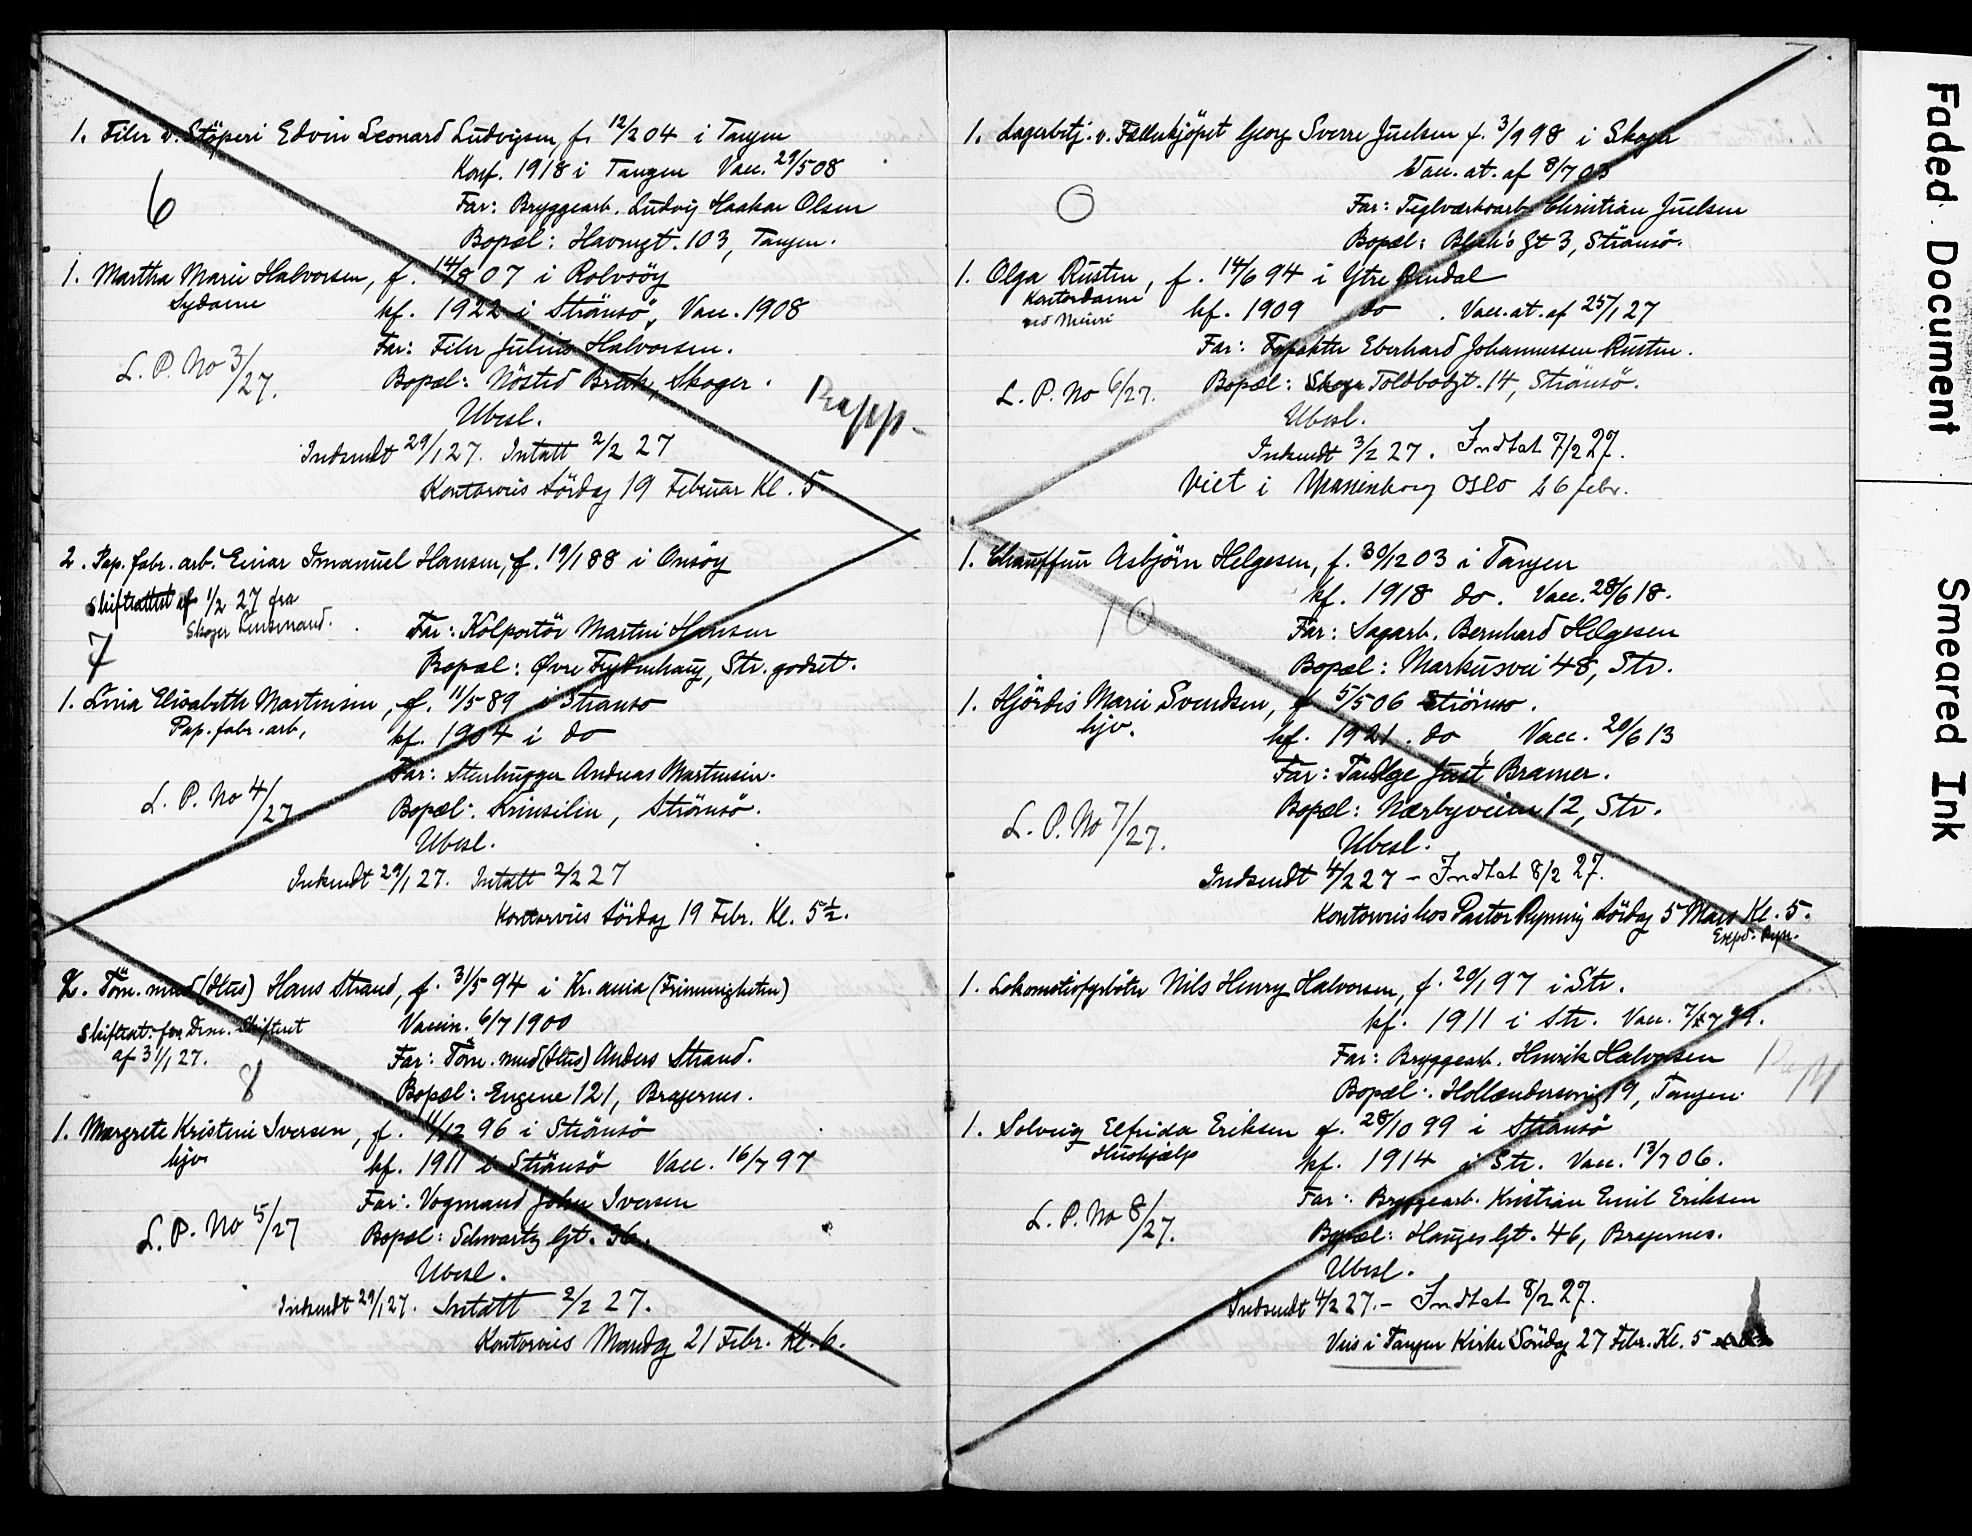 1. Filer v. Støperi Edvin Leonard Ludvigsen, f. 12/2 04 i Tangen
Konf. 1918 i Tangen Vacc. 29/5 08
6
Far: Bryggearb. Ludvig Haakon Olsen
Bopæl: Havnegt. 103, Tangen.
1. Martha Marie Halvorsen, f. 14/8 07 i Rolvsöy
Sydame
kf. 1922 i Strömsö, Vacc. 1908
Far: Filer Julius Halvorsen.
L. P. No 3/27.
Bopæl: Nösted Bruk, Skoger.
Rapp.
Ubesl.
Indsendt 29/1 27. Intatt 2/2 27
Kontorvies Lördag 19 Februar Kl. 5
2. Pap. fabr. arb. Einar Imanuel Hansen, f. 19/1 88 i Onsöy
Skifteattest af 1/2 27 fra
Skoger Lensmand.
7
Far: Kolportör Martin Hansen
Bopæl: Øvre Frydenhaug, Str. godset.
1. Lina Elisabeth Martinsen, f. 11/5 89 i Strömsö
Pap. fabr. arb.
kf. 1904 i do
Far: Stenhugger Andreas Martinsen.
L. P. No 4/27
Bopæl: Krinsilen, Strömsö.
Ubesl.
Indsendt 29/1 27. Intatt 2/2 27
Kontorvies Lördag 19 Febr. Kl. 5½.
2. Töm. mand (Hus) Hans Strand, f. 31/5 94 i Kr.ania (Frimenigheten)
Skifteat. fra Drm. Skifteret
af 31/1 27.
Vaccin. 6/7 1900
8
Far: Töm. mand (Hus) Anders Strand.
Bopæl: Engene 121, Bragernes.
1. Margrete Kristine Iversen, f. 11/12 96 i Strömsö
hjv.
kf. 1911 i Strömsö Vacc. 16/7 97
Far: Vognmand John Iversen
L. P. No 5/27
Bopæl: Schwartz Gt. 36.
Ubesl.
Indsendt 29/1 27. Intatt 2/2 27.
Kontorvies Mandag 21 Febr. Kl. 6.
1. Lagerbetj. v. Fælleskjöpet Georg Sverre Juelsen f. 3/9 98 i Skoger
Vacc. at. af 8/7 03
0
Far: Teglverksarb. Christian Juelsen
Bopæl: Blick's Gt 3, Strömsö.
1. Olga Rusten, f. 14/6 94 i Ytre Rendal
Kontordame
ved Meieri
kf. 1909 do. Vacc. at. af 25/1 27
Far: Forpakter Eberhard Johannessen Rusten.
L. P. No 6/27.
Bopæl: Skoger Toldbodgt. 14, Strömsö.
Ubesl.
Indsendt 3/2 27. Indtat 7/2 27.
Viet i Marienborg Oslo 26 febr.
1. Chauffeur Asbjörn Helgesen, f. 30/12 03 i Tangen
kf. 1918 do. Vacc. 28/6 18.
10
Far: Sagarb. Bernhard Helgesen
Bopæl: Markusvei 48, Str.
1. Hjördis Marie Svendsen, f 5/5 06 Strömsö.
hjv.
kf. 1921. do, Vacc. 20/6 13
Far: Tandlge Just Bramer.
L. P. No 7/27.
Bopæl: Nærbyveien 12, Str.
Ubesl.
Indsendt 4/2 27 - Indtat 8/2 27.
Kontorvies hos Pastor Rynning Lördag 5 Mars Kl. 5.
Exped. Ryn.
1. Lokomotivfyrböter Nils Henry Halvorsen, f. 20/1 97 i Str.
kf. 1911 i Str. Vacc. 7/7 99.
Far: Bryggearb. Henrik Halvorsen
Rapp
Bopæl: Hollændersving 19, Tangen.
1. Solveig Elfrida Eriksen f. 28/10 99 i Strömsö
Hushjælp
kf. 1914 i Str. Vacc. 13/7 06.
Far: Bryggearb. Kristian Emil Eriksen
L. P. No 8/27.
Bopæl: Hauges Gt. 46, Bragernes.
Ubesl.
Indsendt 4/2 27. - Indtat 8/2 27.
Vies i Tangen Kirke Söndag 27 Febr. Kl. 5
Faded Document
Smeared Ink